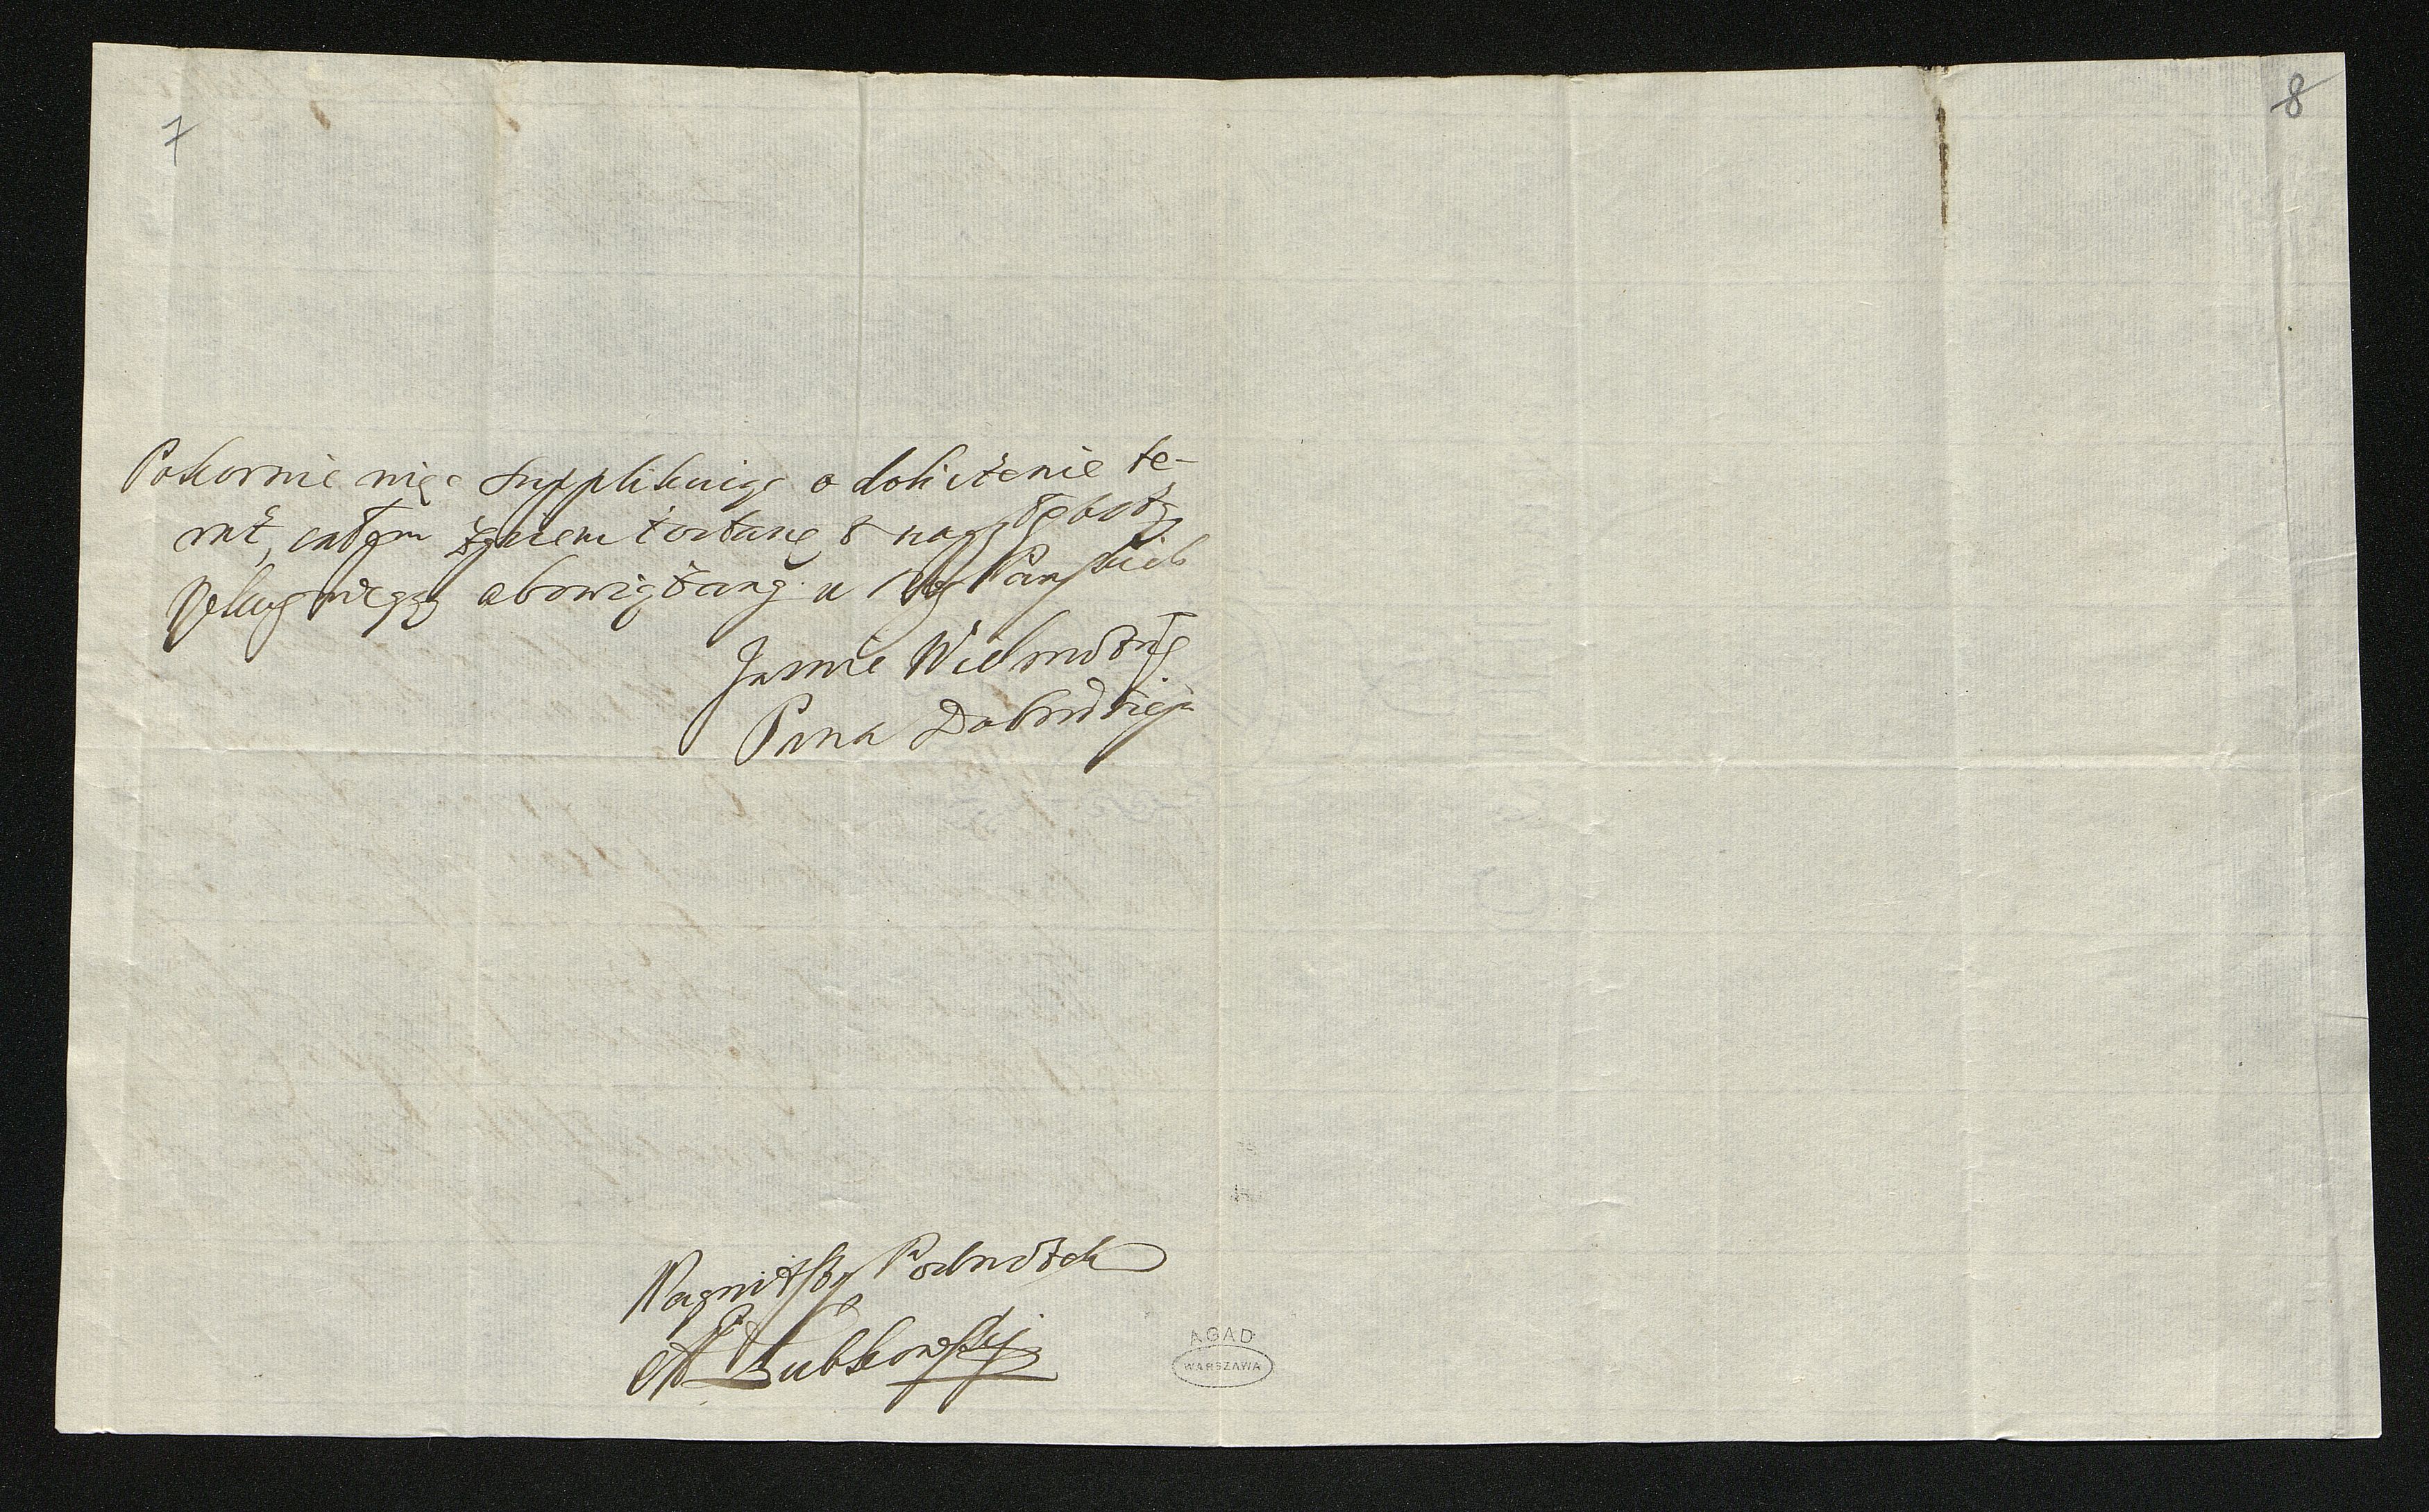 7
8
Pokornie więc Supplikuię o doliczenie te-
raz, całym życiem zostanę z nayygłębszą
Weneracyą obowiązany u Nóg Pańskich
Jasnie Wielmożnego
Pana Dobrodzieja
Nayniższy Podnóżek
A Zubkowski
AGAD
WARSZAWA